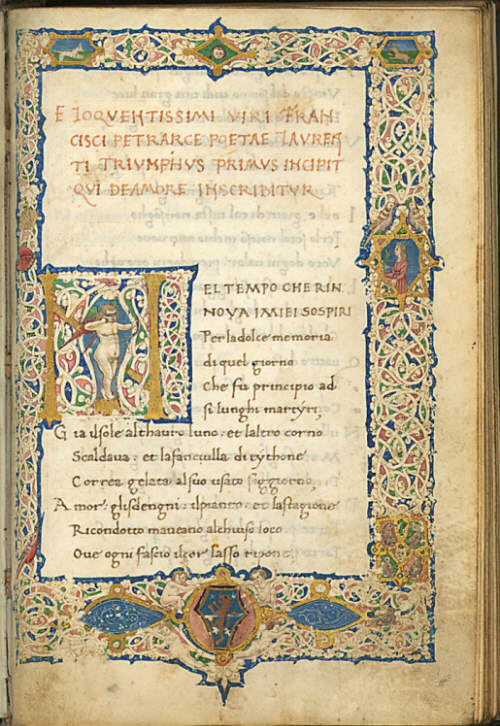 ELOQVENTISSIMI VIRI FRAN
CISCI PETRARCE POETAE LAVREN
TI TRIVMPHVS PRIMVS INCIPIT
QVI DE AMORE INSCRIBITVR
NEL TEMPO CHE RIN
NOVA I MIEI SOSPIRI
Per la dolce memoria
di quel giorno
Che fu principio ad
si lunghi martyri
Gia il sole al thauro luno et laltro corno
Scaldaua et la fanciulla di tythone
Correa gelata al suo usato soggiorno
Amor gli sdengni il pianto et la stagione
Ricondotto maueano al chiuso loco
Oue ogni fascio il cor lasso ripone